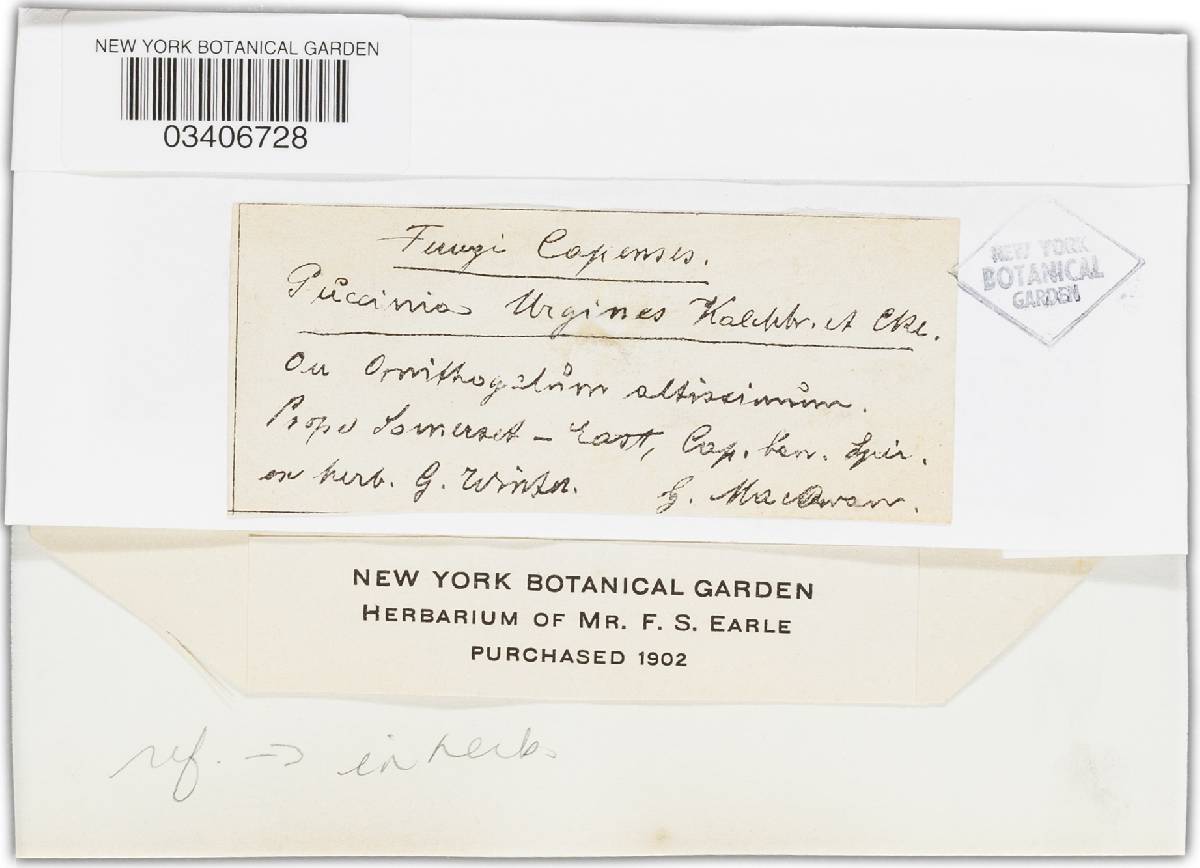 NEW YORK BOTANICAL GARDEN
03406728
Fungi Capenses.
Puccinia Urgines Kalchbr. et Cke.
On Ornithogalum altissimum.
Prope Somerset – East, Cap. bon. Spei.
ex herb. G. Winter. G. MacOwan.
NEW YORK
BOTANICAL
GARDEN
NEW YORK BOTANICAL GARDEN
HERBARIUM OF MR. F. S. EARLE
PURCHASED 1902
ref. → in herb